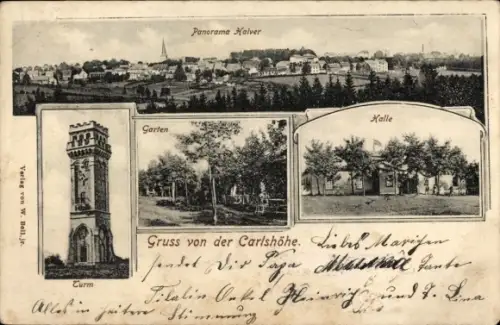 Panorama Halver
Garten
Halle
Turm
Verlag von W. Bell, jr.
Gruss von der Carlshöhe.
Liebes Mariechen
sendet Dir Papa Mama Tante
Onkel Heinrich und T. Lina
Alles in heiterer Stimmung